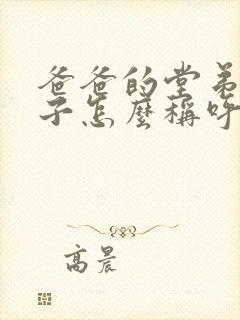 爸爸的堂弟
子怎麼稱呼
高晨